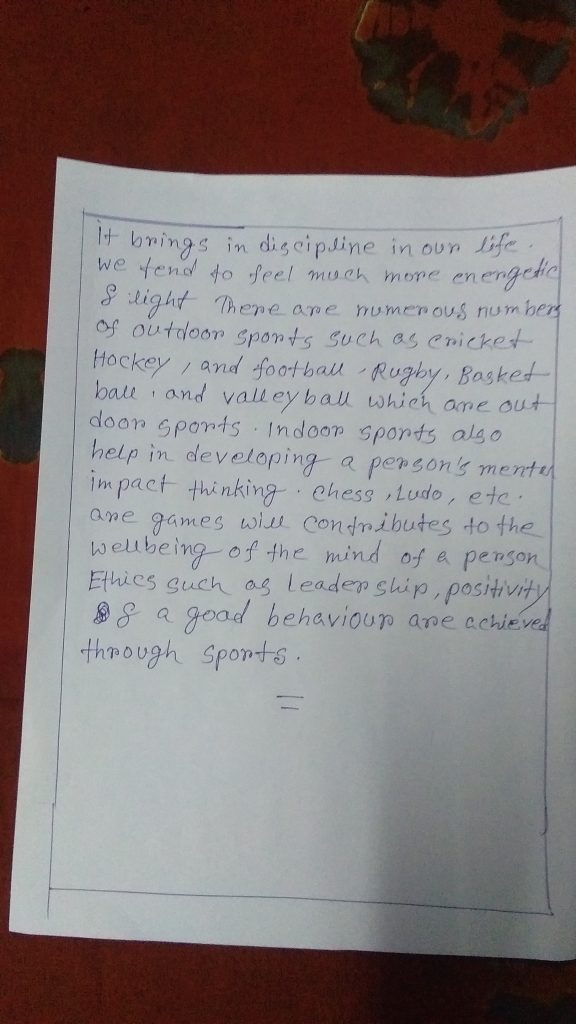 it brings in discipline in our life.
we tend to feel much more energetic
& light There are numerous numbers
of outdoor sports such as cricket
Hockey, and football, Rugby, Basket
ball, and valleyball which are out
door sports. Indoor sports also
help in developing a person's mental
impact thinking. chess, Ludo, etc.
are games will contributes to the
wellbeing of the mind of a person
Ethics such as Leadership, positivity
& a goad behaviour are achieved
through sports.